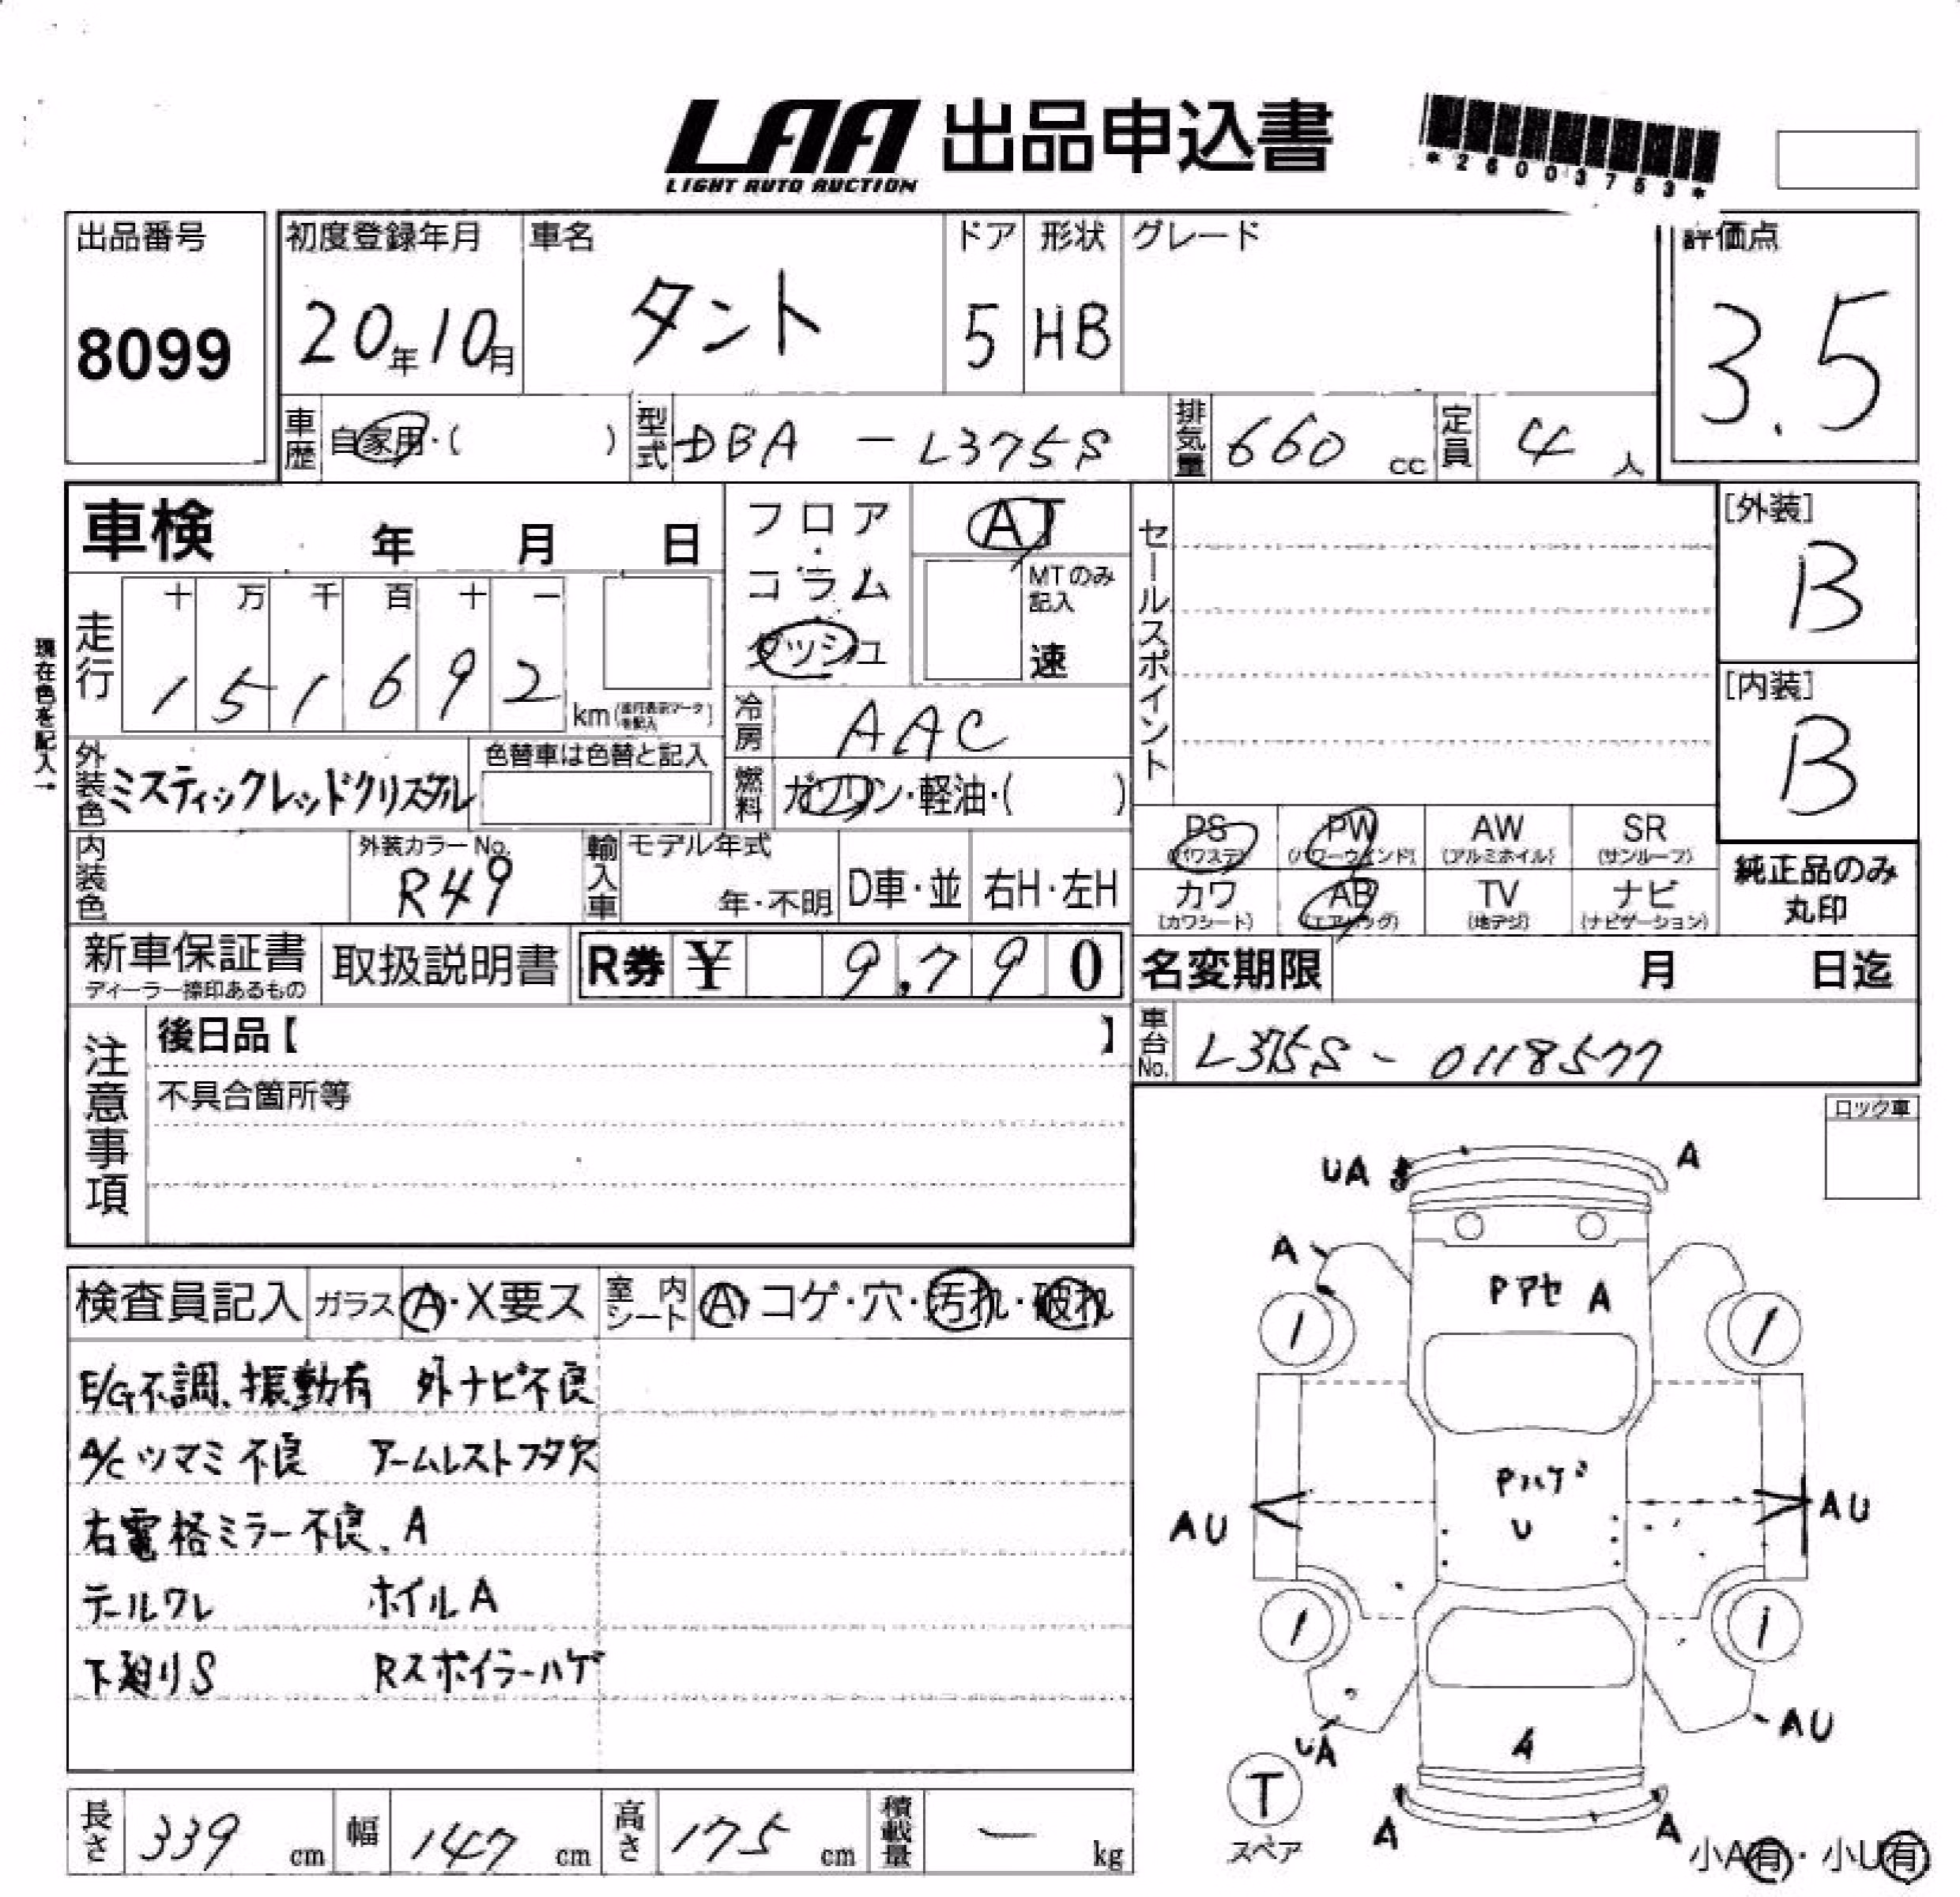 LAA 出品申込書
LIGHT AUTO AUCTION
*26003753*
出品番号
8099
初度登録年月
20年10月
車名
タント
ドア
5
形状
HB
グレード
評価点
3.5
車歴
自家用・( )
型式
DBA - L375S
排気量
660 cc
定員
4 人
車検 年 月 日
フロア・コラム
ダッシュ
AT
MTのみ記入
速
セールスポイント
[外装]
B
[内装]
B
現在色を記入→
走行
十 万 千 百 十 一
1 5 1 6 9 2
km
冷房
AAC
外装色
ミスティックレッドクリスタル
色替車は色替と記入
燃料
ガソリン・軽油・( )
PS (パワステ)
PW (パワーウインド)
AW (アルミホイル)
SR (サンルーフ)
カワ (カワシート)
AB (エアバッグ)
TV (地デジ)
ナビ (ナビゲーション)
純正品のみ
丸印
内装色
外装カラーNo.
R49
輸入車
モデル年式
年・不明
D車・並
右H・左H
新車保証書
ディーラー捺印あるもの
取扱説明書
R券 ¥ 9,790
名変期限 月 日迄
車台No.
L375S - 0118577
注意事項
後日品【 】
不具合箇所等
ロック車
検査員記入
ガラス A・X要ス
室内シート A・コゲ・穴・汚れ・破れ
E/G不調、振動有 外ナビ不良
A/Cツマミ不良 アームレストフタ欠
右電格ミラー不良、A
テールワレ ホイルA
下廻りS Rスポイラーハゲ
UA
A
A
Pアセ A
1
1
Pハゲ
U
AU
AU
1
1
UA
AU
A
A
T
スペア
A
小A有・小U有
長さ 339 cm
幅 147 cm
高さ 175 cm
積載量 - kg